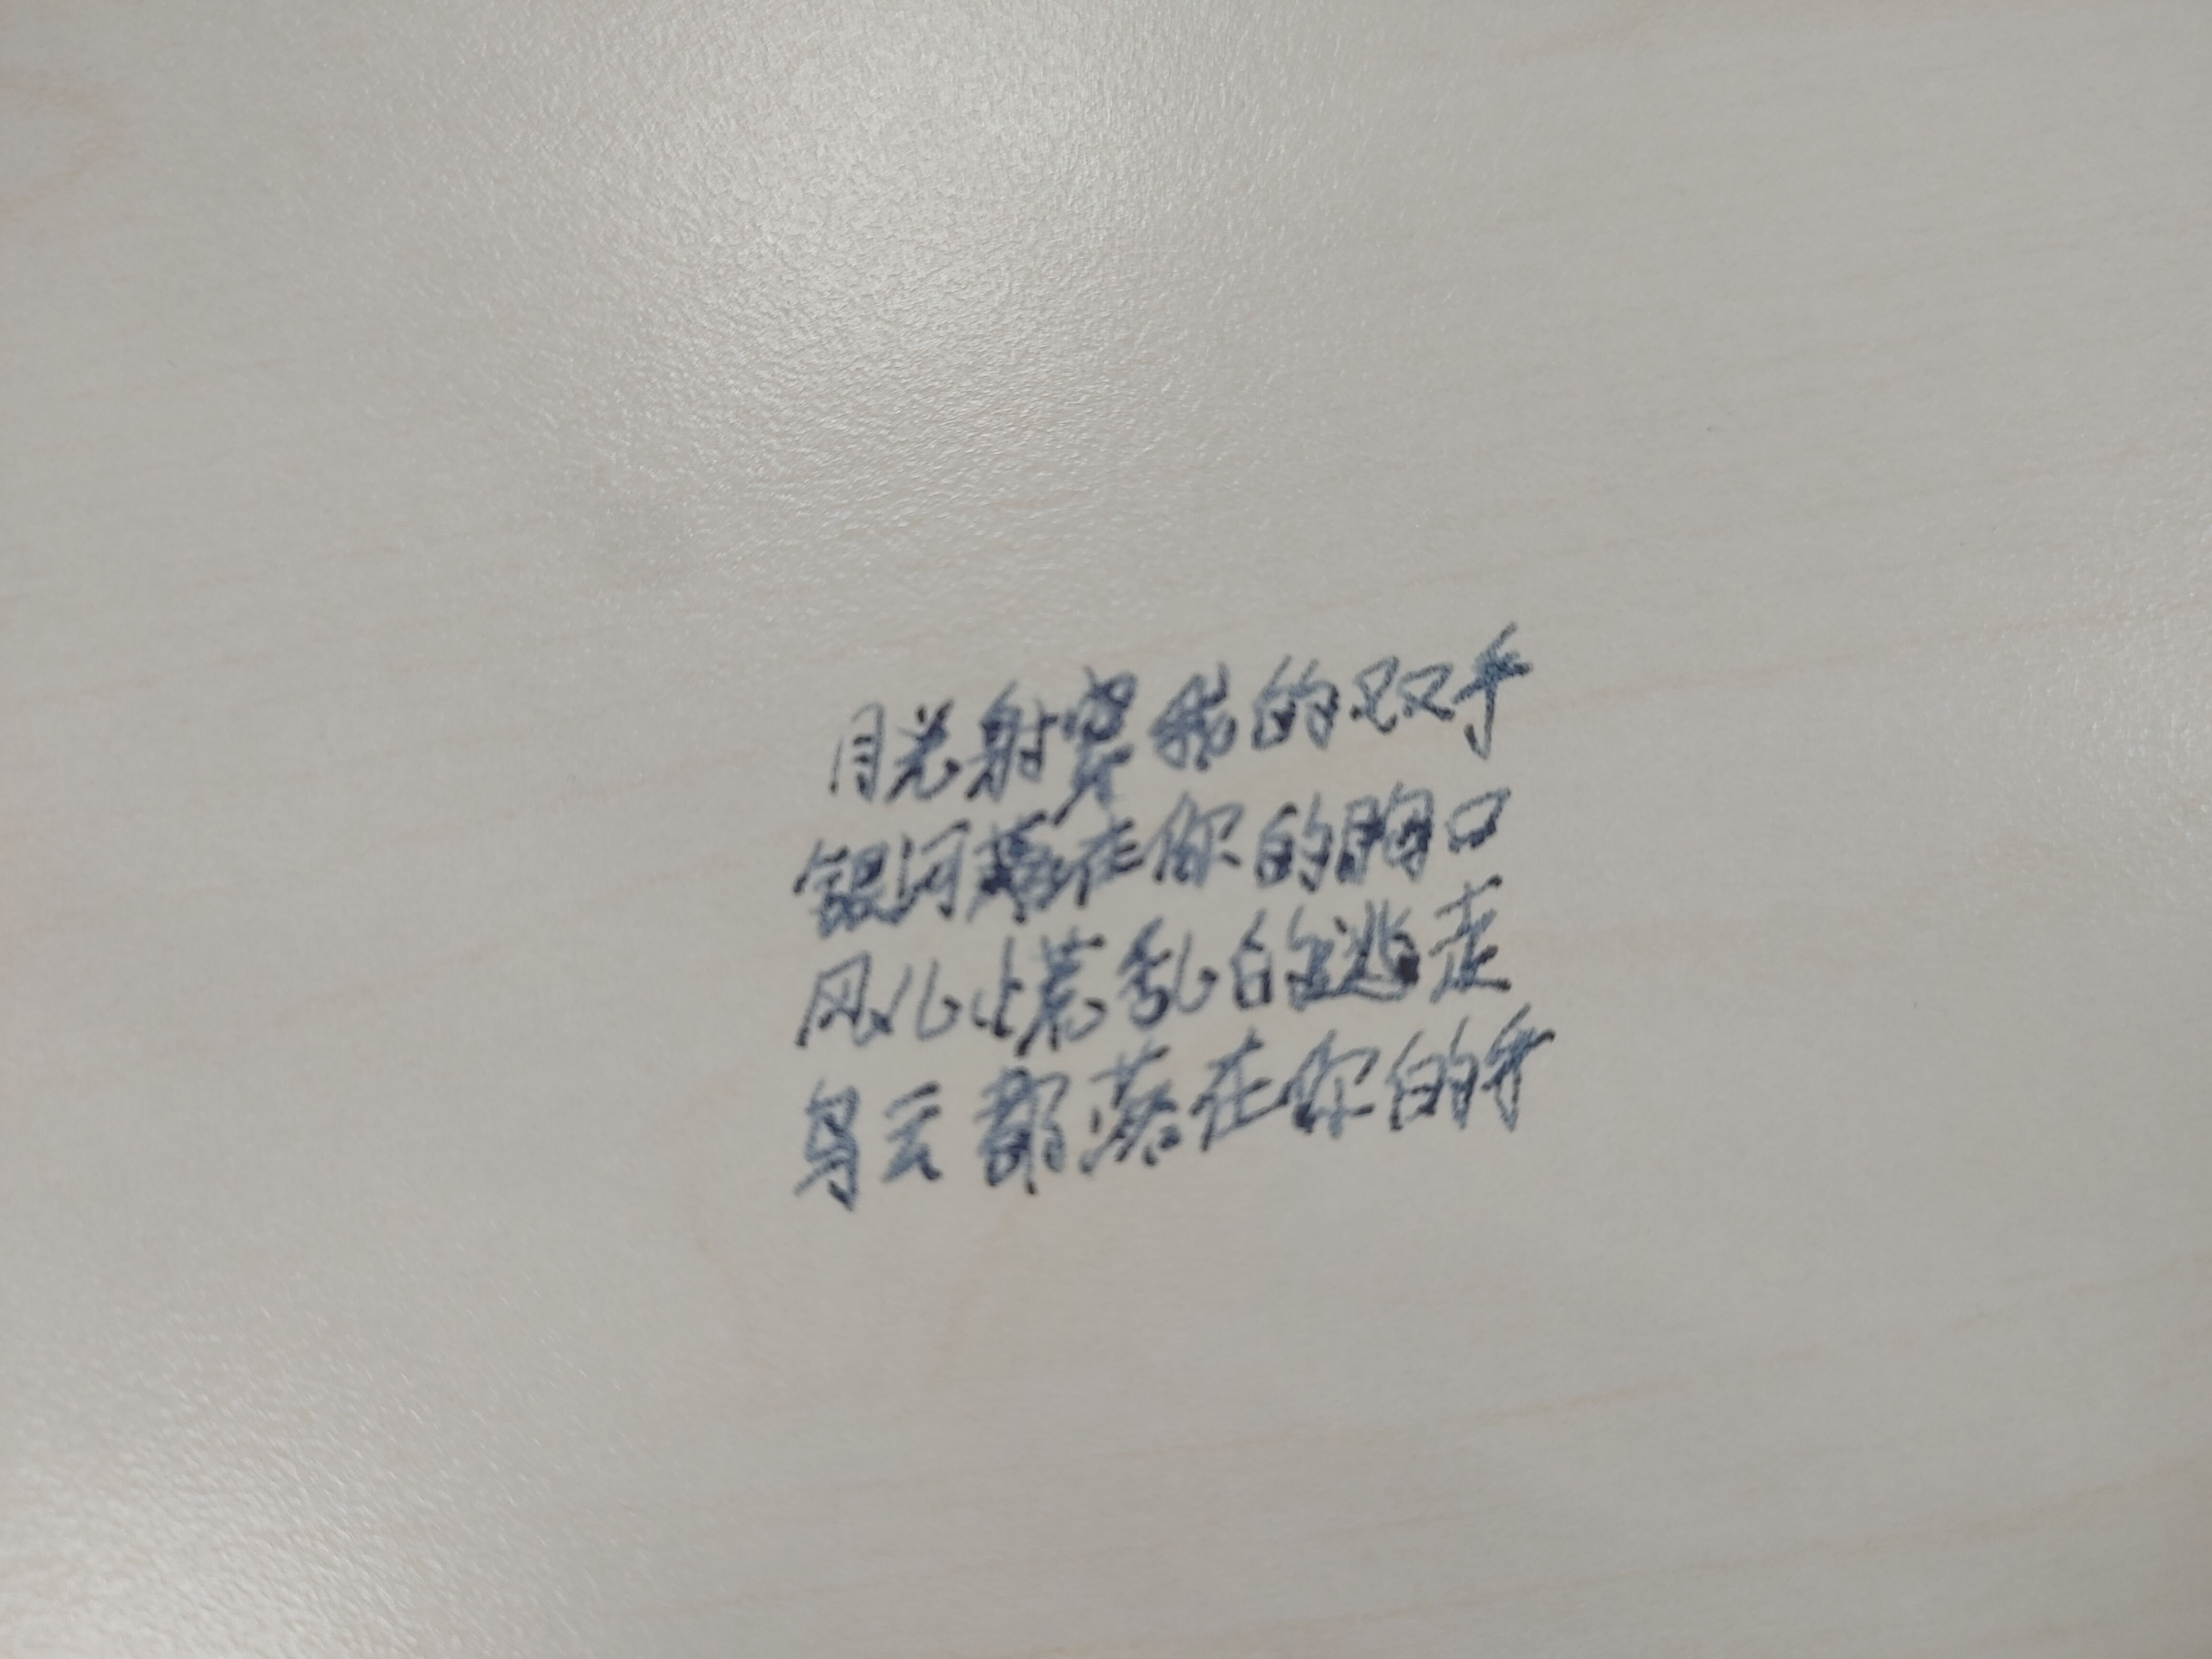 月光射穿我的双手
银河落在你的胸口
风儿慌乱的逃走
乌云都落在你的手